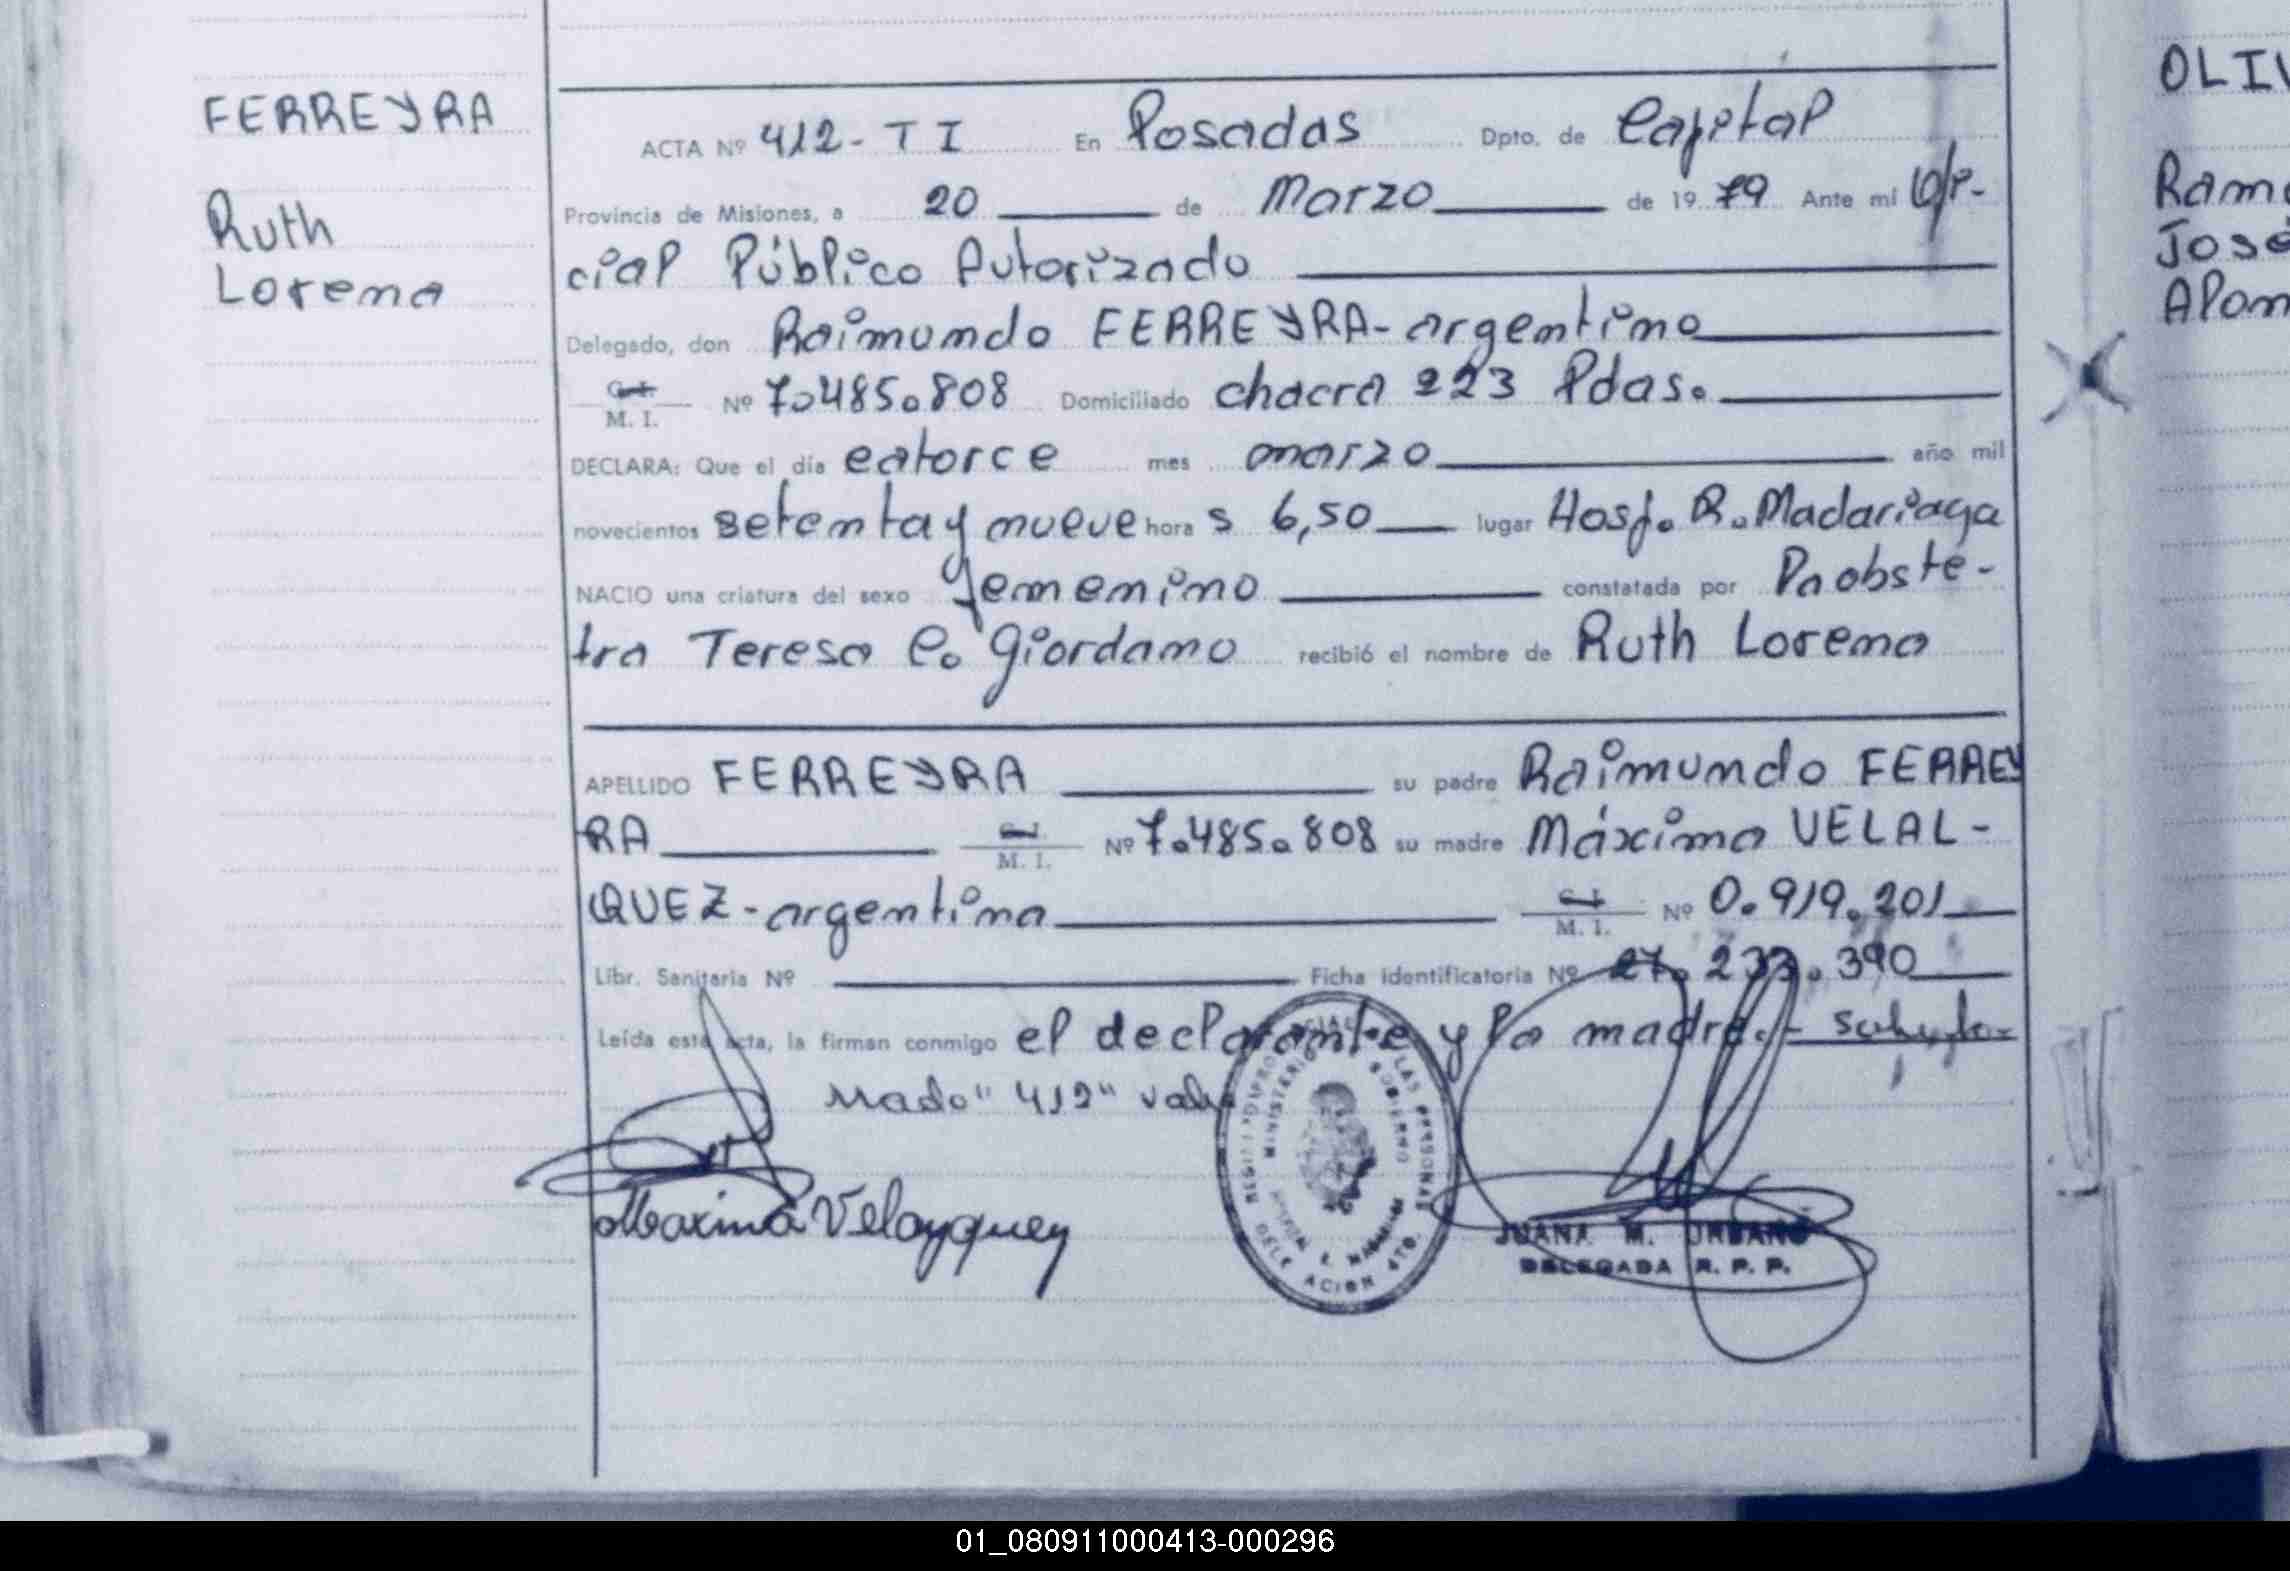 FERREYRA
Ruth
Lorena
ACTA Nº 412- T I En Posadas Dpto. de Capital
Provincia de Misiones, a 20 de Marzo de 1979 Ante mi Ofi-
cial Público Autorizado
Delegado, don Raimundo FERREYRA- argentino
C. I. M. I. Nº 7.485.808 Domiciliado chacra 223 Pdas.
DECLARA: Que el día catorce mes marzo año mil
novecientos setenta y nueve hora s 6,50 lugar Hosp. R. Madariaga
NACIO una criatura del sexo femenino constatada por Da obste-
tra Teresa C. Giordano recibió el nombre de Ruth Lorena
APELLIDO FERREYRA su padre Raimundo FERREY
RA C. I. M. I. Nº 7.485.808 su madre Máxima VELAL-
QUEZ - argentina C. I. M. I. Nº 0.919.201
Libr. Sanitaria Nº Ficha identificatoria Nº 27.233.390
Leída esta acta, la firman conmigo el declarante y la madre.-
"412" vale
Maxima Velazquez
MINISTERIO GOBIERNO
LAS PERSONAS
DELEGACION
JUANA M. URBANO
DELEGADA R. P. P.
OLIV
Ramo
José
Alon
01_080911000413-000296